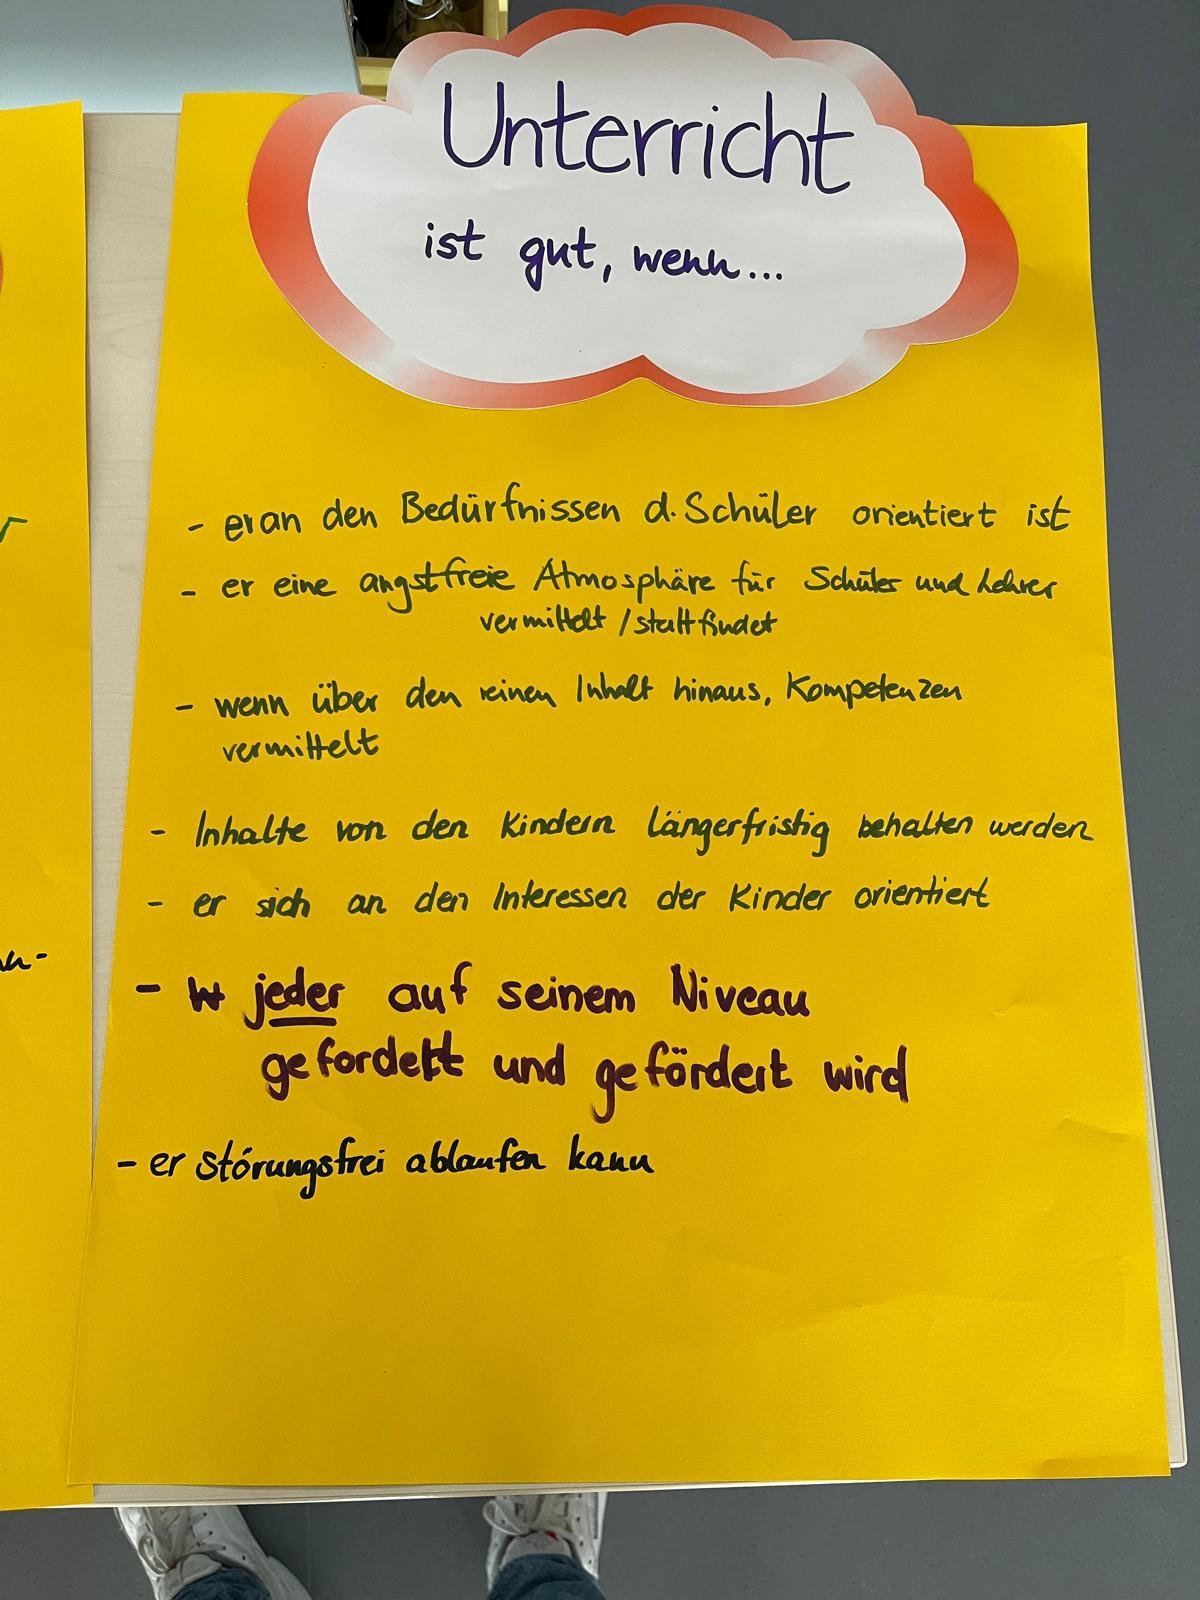 Unterricht
ist gut, wenn...
- er an den Bedürfnissen d. Schüler orientiert ist
- er eine angstfreie Atmosphäre für Schüler und Lehrer
vermittelt / stattfindet
- wenn über den reinen Inhalt hinaus, Kompetenzen
vermittelt
- Inhalte von den Kindern längerfristig behalten werden
- er sich an den Interessen der Kinder orientiert
- jeder auf seinem Niveau
gefordert und gefördert wird
- er störungsfrei ablaufen kann